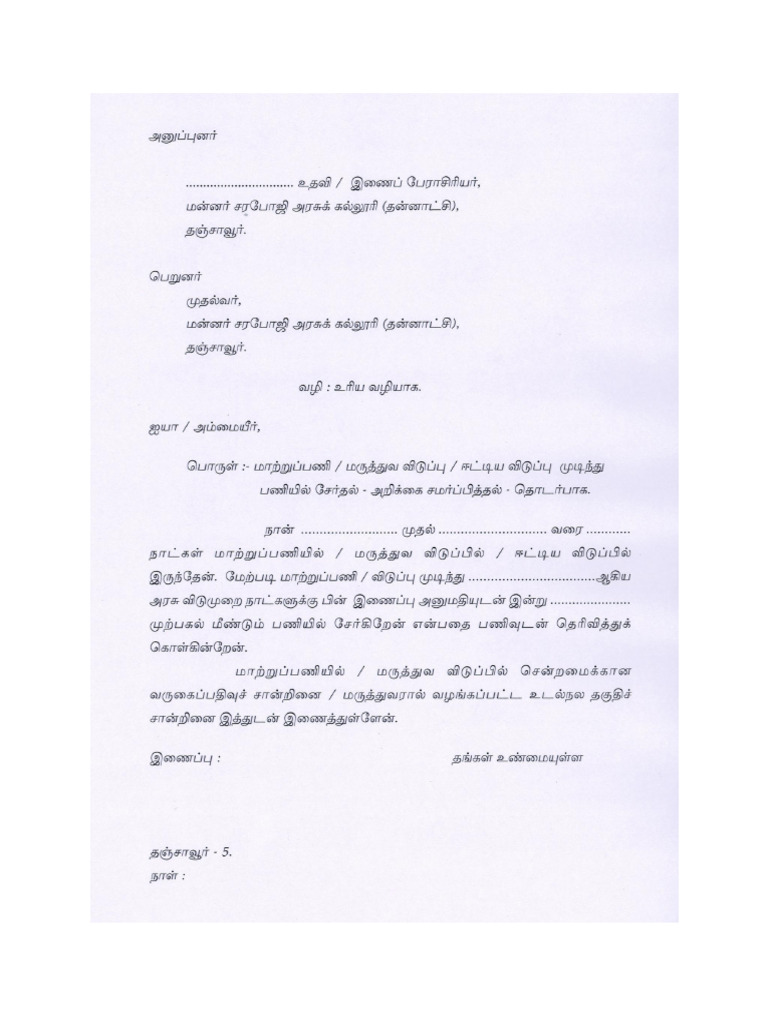 அனுப்புனர்
............................... உதவி / இணைப் பேராசிரியர்,
மன்னர் சரபோஜி அரசுக் கல்லூரி (தன்னாட்சி),
தஞ்சாவூர்.
பெறுனர்
முதல்வர்,
மன்னர் சரபோஜி அரசுக் கல்லூரி (தன்னாட்சி),
தஞ்சாவூர்.
வழி : உரிய வழியாக.
ஐயா / அம்மையீர்,
பொருள் :- மாற்றுப்பணி / மருத்துவ விடுப்பு / ஈட்டிய விடுப்பு முடிந்து
பணியில் சேர்தல் - அறிக்கை சமர்ப்பித்தல் - தொடர்பாக.
நான் .......................... முதல் ............................. வரை ............
நாட்கள் மாற்றுப்பணியில் / மருத்துவ விடுப்பில் / ஈட்டிய விடுப்பில்
இருந்தேன். மேற்படி மாற்றுப்பணி / விடுப்பு முடிந்து ..................................ஆகிய
அரசு விடுமுறை நாட்களுக்கு பின் இணைப்பு அனுமதியுடன் இன்று ......................
முற்பகல் மீண்டும் பணியில் சேர்கிறேன் என்பதை பணிவுடன் தெரிவித்துக்
கொள்கின்றேன்.
மாற்றுப்பணியில் / மருத்துவ விடுப்பில் சென்றமைக்கான
வருகைப்பதிவுச் சான்றினை / மருத்துவரால் வழங்கப்பட்ட உடல்நல தகுதிச்
சான்றினை இத்துடன் இணைத்துள்ளேன்.
இணைப்பு : தங்கள் உண்மையுள்ள
தஞ்சாவூர் - 5.
நாள் :